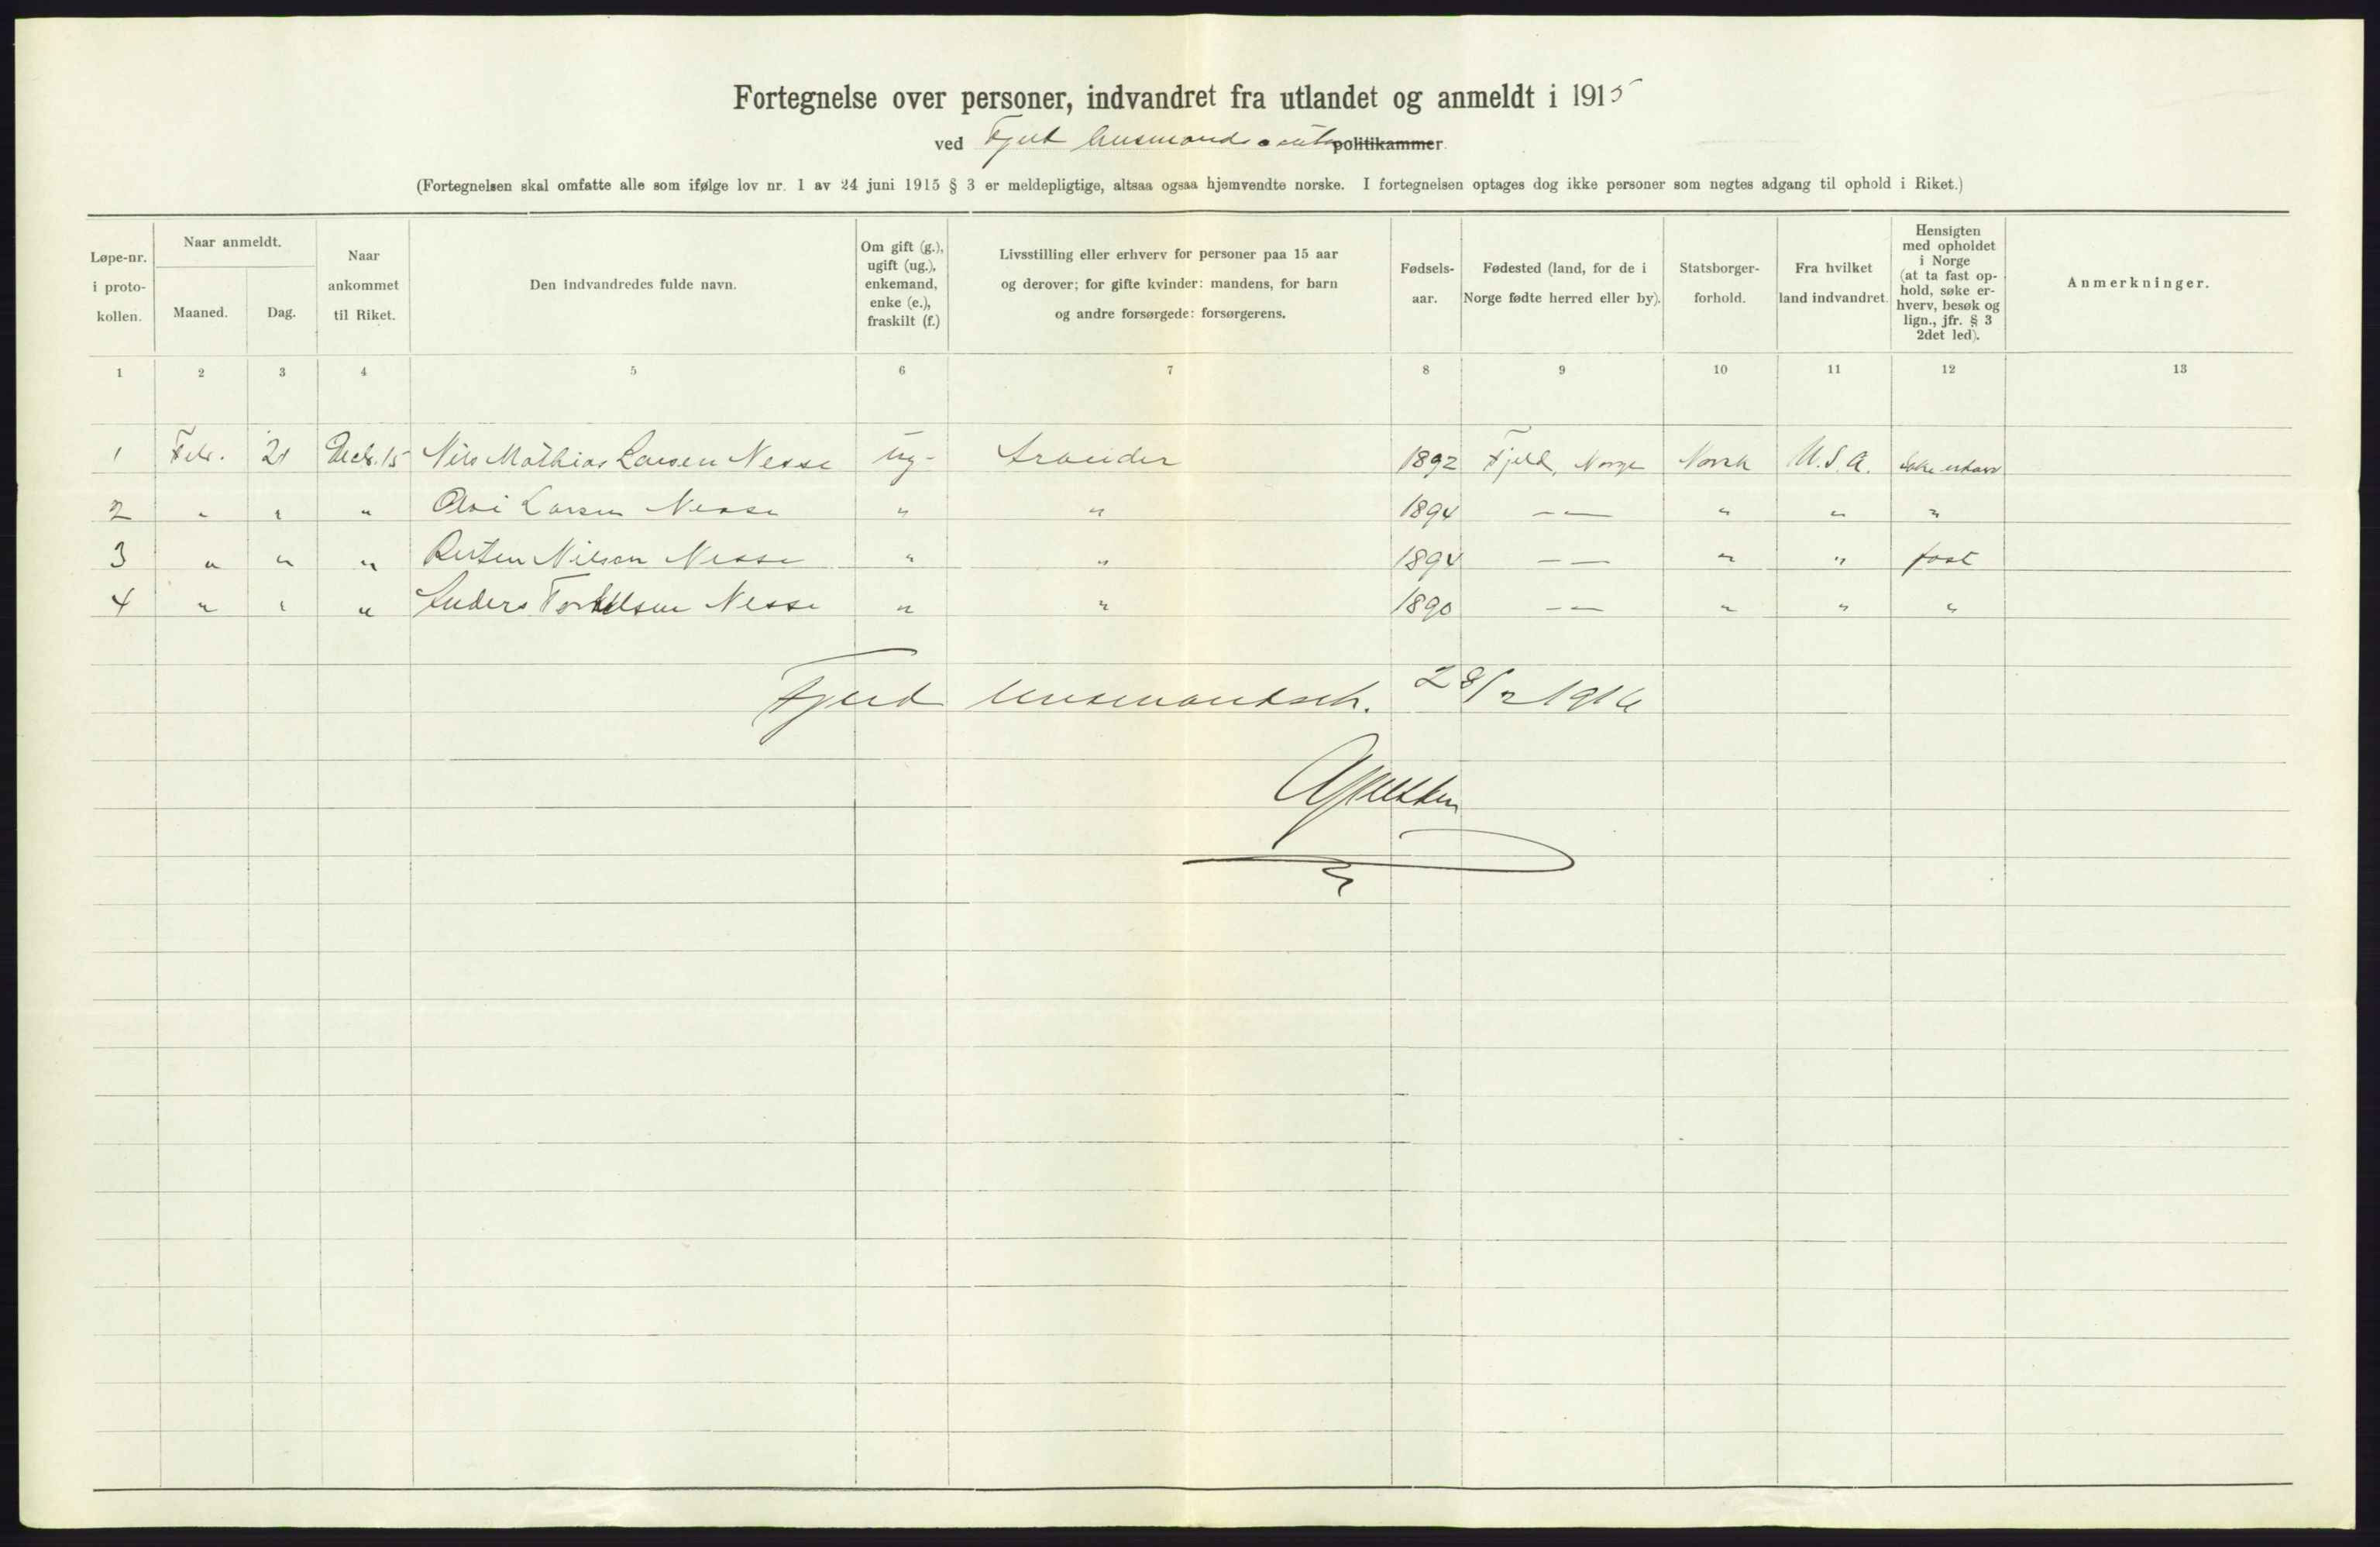 Fortegnelse over personer, indvandret fra utlandet og anmeldt i 1915
ved Fjeld lensmands politikammer.
(Fortegnelsen skal omfatte alle som ifølge lov nr. 1 av 24 juni 1915 § 3 er meldepligtige, altsaa ogsaa hjemvendte norske. I fortegnelsen optages dog ikke personer som negtes adgang til ophold i Riket.)
Løpe-nr. i proto-kollen.
Naar anmeldt.
Maaned.
Dag.
Naar ankommet til Riket.
Den indvandredes fulde navn.
Om gift (g.), ugift (ug.), enkemand, enke (e.), fraskilt (f.)
Livsstilling eller erhverv for personer paa 15 aar og derover; for gifte kvinder: mandens, for barn og andre forsørgede: forsørgerens.
Fødsels-aar.
Fødested (land, for de i Norge fødte herred eller by).
Statsborger-forhold.
Fra hvilket land indvandret.
Hensigten med opholdet i Norge (at ta fast op-hold, søke er-hverv, besøk og lign., jfr. § 3 2det led).
Anmerkninger.
1 2 3 4 5 6 7 8 9 10 11 12 13
1 Febr. 21 Decb. 15 Nils Mathias Larsen Nesse ug- Arbeider 1892 Fjeld, Norge Norsk U.S.A. Søke erhverv
2 " " " Larsen Nesse " " 1894 — — " " "
3 " " " Nilsen Nesse " " 1894 — — " " fast
4 " " " Anders Torkelsen Nesse " " 1890 — — " " "
Fjeld lensmandsk. 28/2 1916